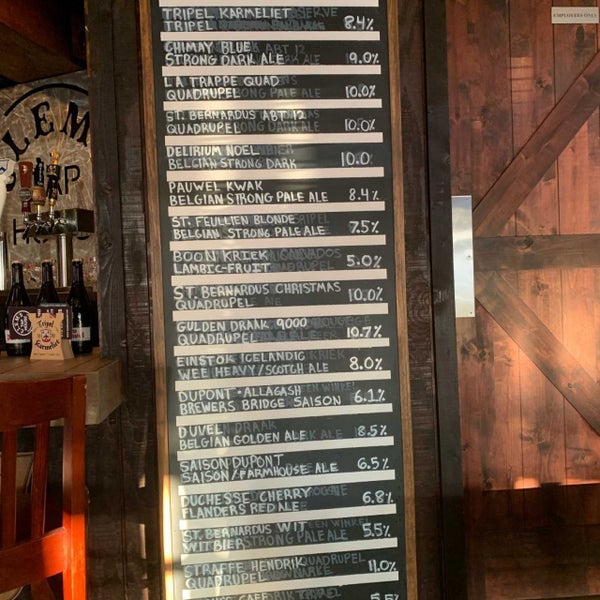 EMPLOYEES ONLY
TRIPEL KARMELIET
TRIPEL 8.4%
CHIMAY BLUE
STRONG DARK ALE 19.0%
LA TRAPPE QUAD
QUADRUPEL 10.0%
ST. BERNARDUS ABT 12
QUADRUPEL 10.0%
DELIRIUM NOEL
BELGIAN STRONG DARK 10.0
PAUWEL KWAK
BELGIAN STRONG PALE ALE 8.4%
ST. FEULLIEN BLONDE
BELGIAN STRONG PALE ALE 7.5%
BOON KRIEK
LAMBIC-FRUIT 5.0%
ST. BERNARDUS CHRISTMAS
QUADRUPEL 10.0%
GULDEN DRAAK 9000
QUADRUPEL 10.7%
EINSTOK ICELANDIC
WEE HEAVY/SCOTCH ALE 8.0%
DUPONT-ALLAGASH
BREWERS BRIDGE SAISON 6.1%
DUVEL
BELGIAN GOLDEN ALE 8.5%
SAISON DUPONT
SAISON/FARMHOUSE ALE 6.5%
DUCHESSE CHERRY
FLANDERS RED ALE 6.8%
ST. BERNARDUS WIT
WITBIER 5.5%
STRAFFE HENDRIK
QUADRUPEL 11.0%
LEM
Tripel
Karmeliet